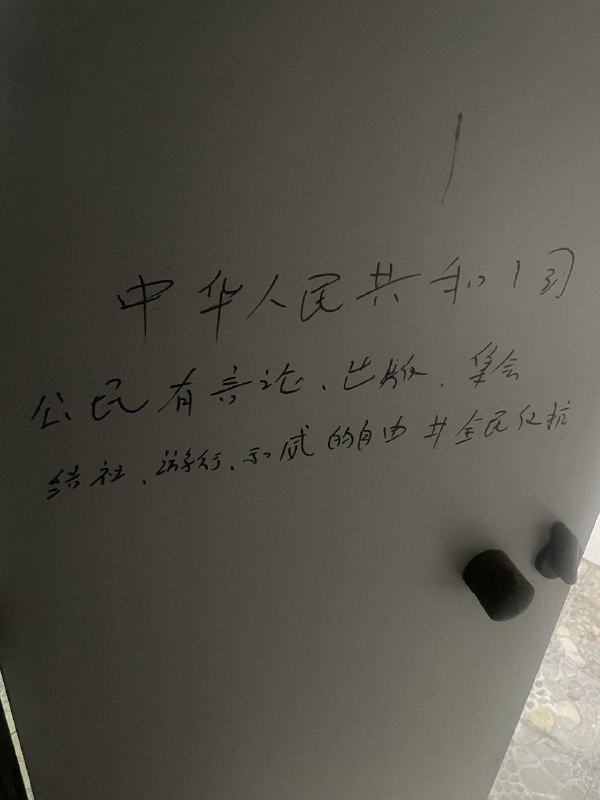 中华人民共和国
公民有言论、出版、集会
结社、游行、示威的自由 #全民反抗